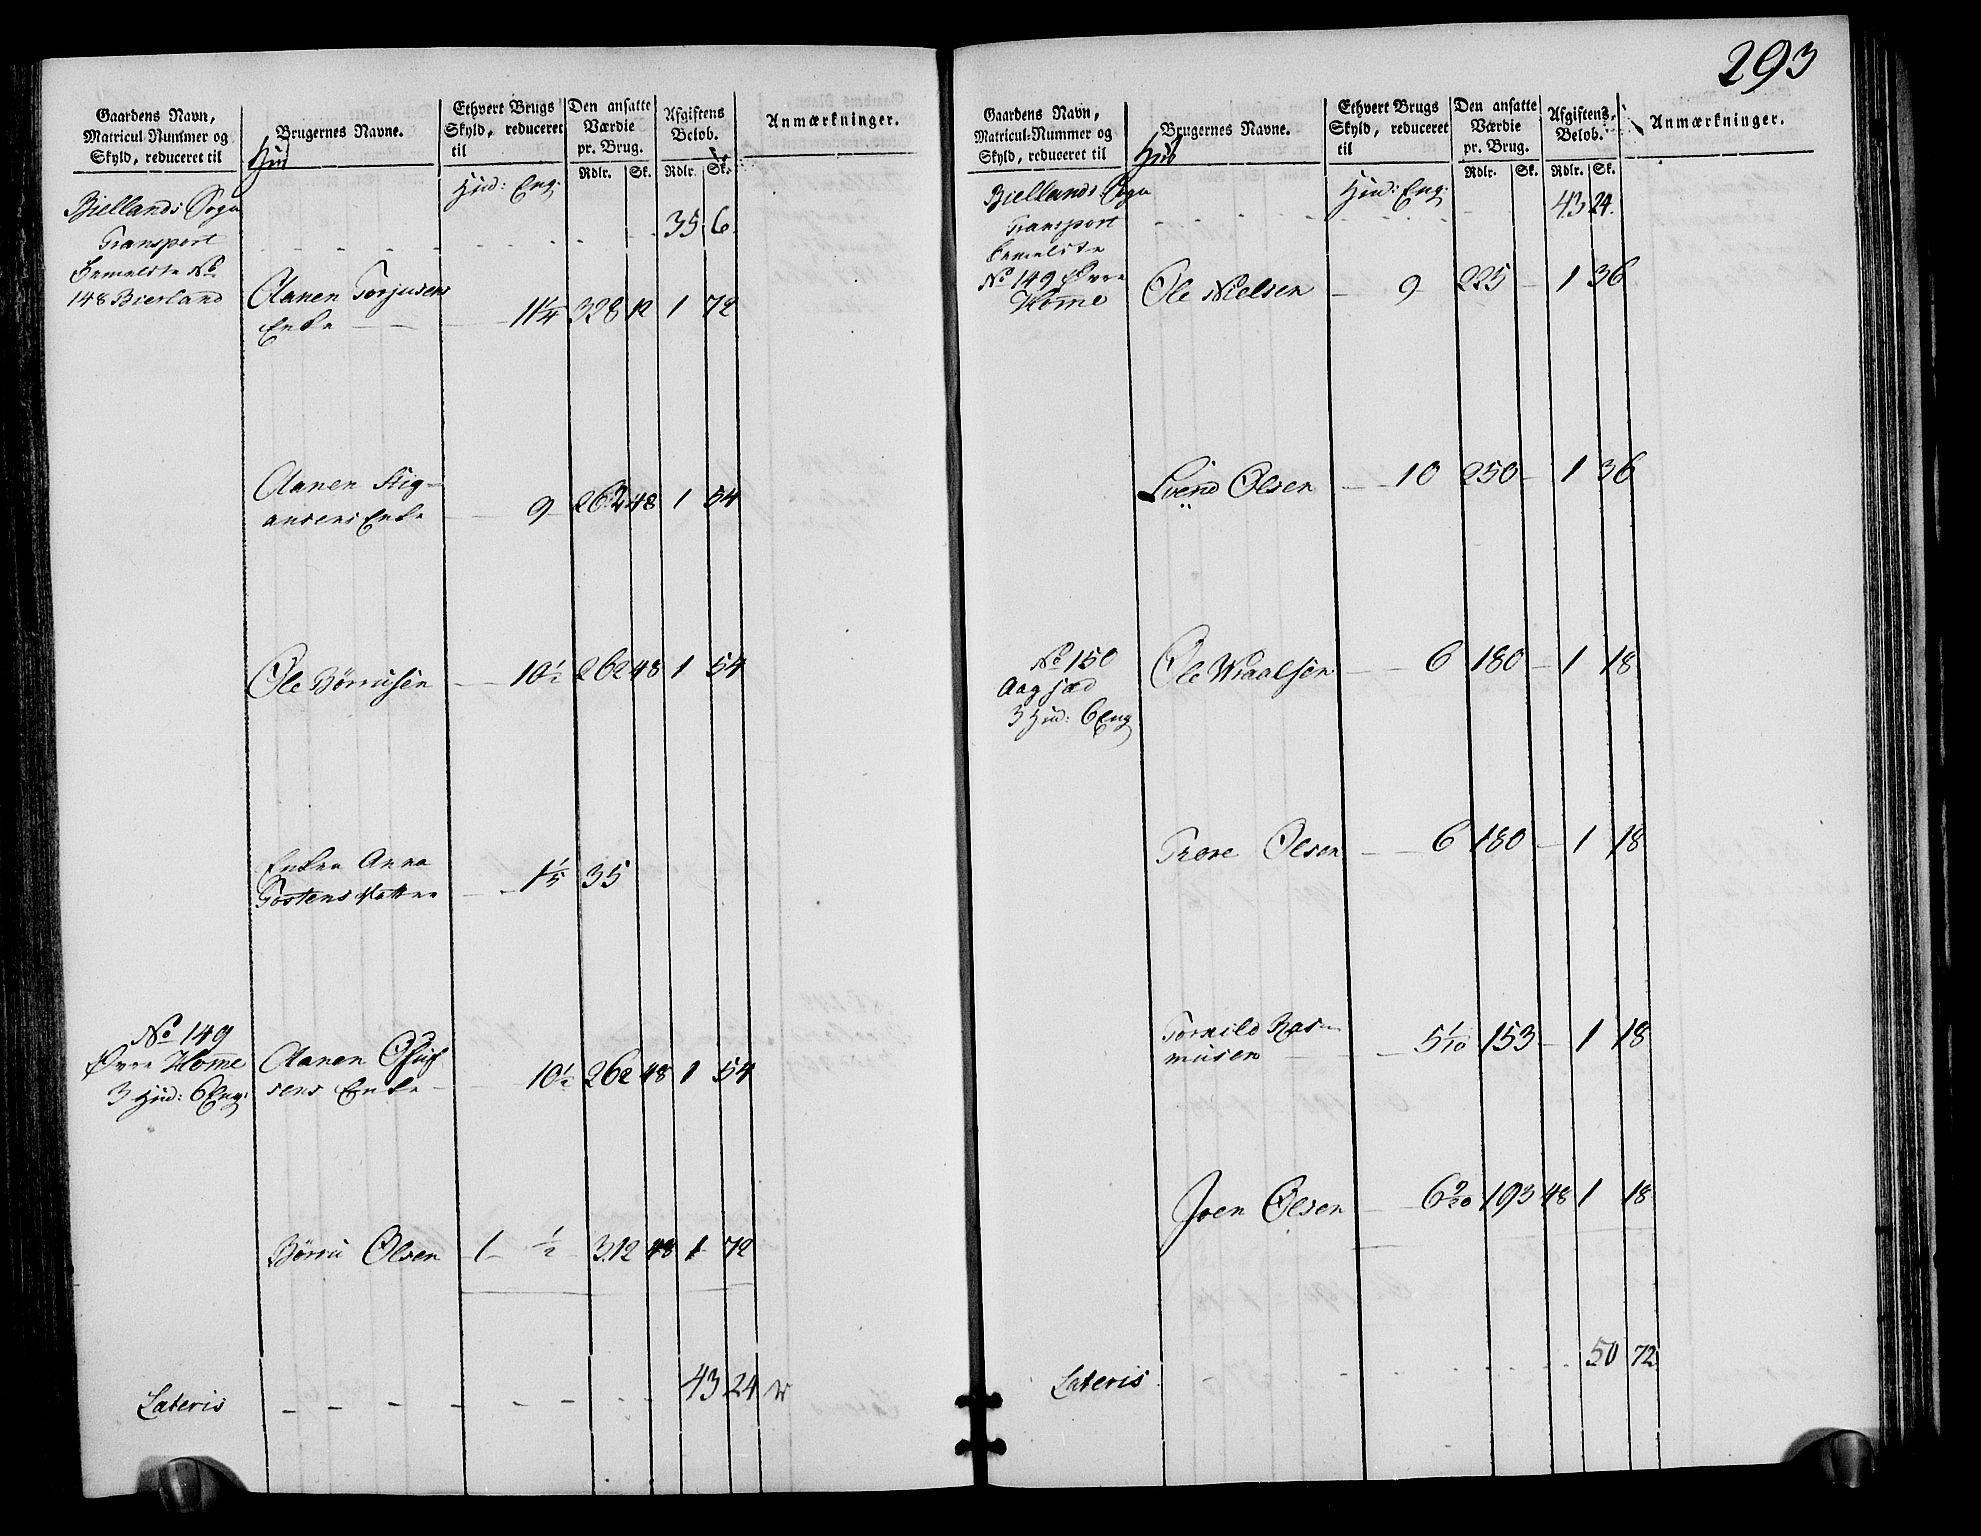 Gaardens Navn, Matricul-Nummer og Skyld, reduceret til
Brugernes Navne.
Ethvert Brugs Skyld, reduceret til
Den ansatte Værdie pr. Brug. Rdlr. Sk.
Afgiftens Beløb. Rdlr. Sk.
Anmærkninger.
Hud
Hud: Eng:
Biellands Sogn
Transport 35 6
No
148 Bierland Aanen Torjusens
Enke 11¼ 328 12 1 72
Aanen Stig-
ansens Enke 9 262 48 1 54
Ole Børrusen 10½ 262 48 1 54
Enken Anna
Tostens Datter 1⅕ 35
No 149
Øvre Home Aanen
3 Hud: 6 Eng: sens Enke 10½ 262 48 1 54
Børru Olsen 1 ½ 312 48 1 72
Lateris 43 24
293
Gaardens Navn, Matricul-Nummer og Skyld, reduceret til
Brugernes Navne.
Ethvert Brugs Skyld, reduceret til
Den ansatte Værdie pr. Brug. Rdlr. Sk.
Afgiftens Beløb. Rdlr. Sk.
Anmærkninger.
Hud
Hud: Eng:
Biellands Sogn
Transport 43 24
No 149 Øvre
Home Ole Nielsen 9 225 1 36
Svend Olsen 10 250 1 36
No 150
Aagsæd Ole Wraalsen 6 180 1 18
3 Hud: 6 Eng
Trore Olsen 6 180 1 18
Tormild Ras-
musen 5 1/10 153 1 18
Joen Olsen 6 9/20 193 48 1 18
Lateris 50 72